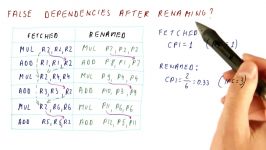 FALSE DEPENDENCIES AFTER RENAMING?
FETCHED RENAMED
MUL R2,R2,R2 MUL P7,P2,P2
ADD R1,R1,R2 ADD P8,P1,P7
MUL R2,R4,R4 MUL P9,P4,P4
ADD R3,R3,R2 ADD P10,P3,P9
MUL R2,R6,R6 MUL P11,P6,P6
ADD R5,R5,R2 ADD P12,P5,P11
FETCHED
CPI=1 (IPC=1)
RENAMED:
CPI=2/6=0.33 (IPC=3)